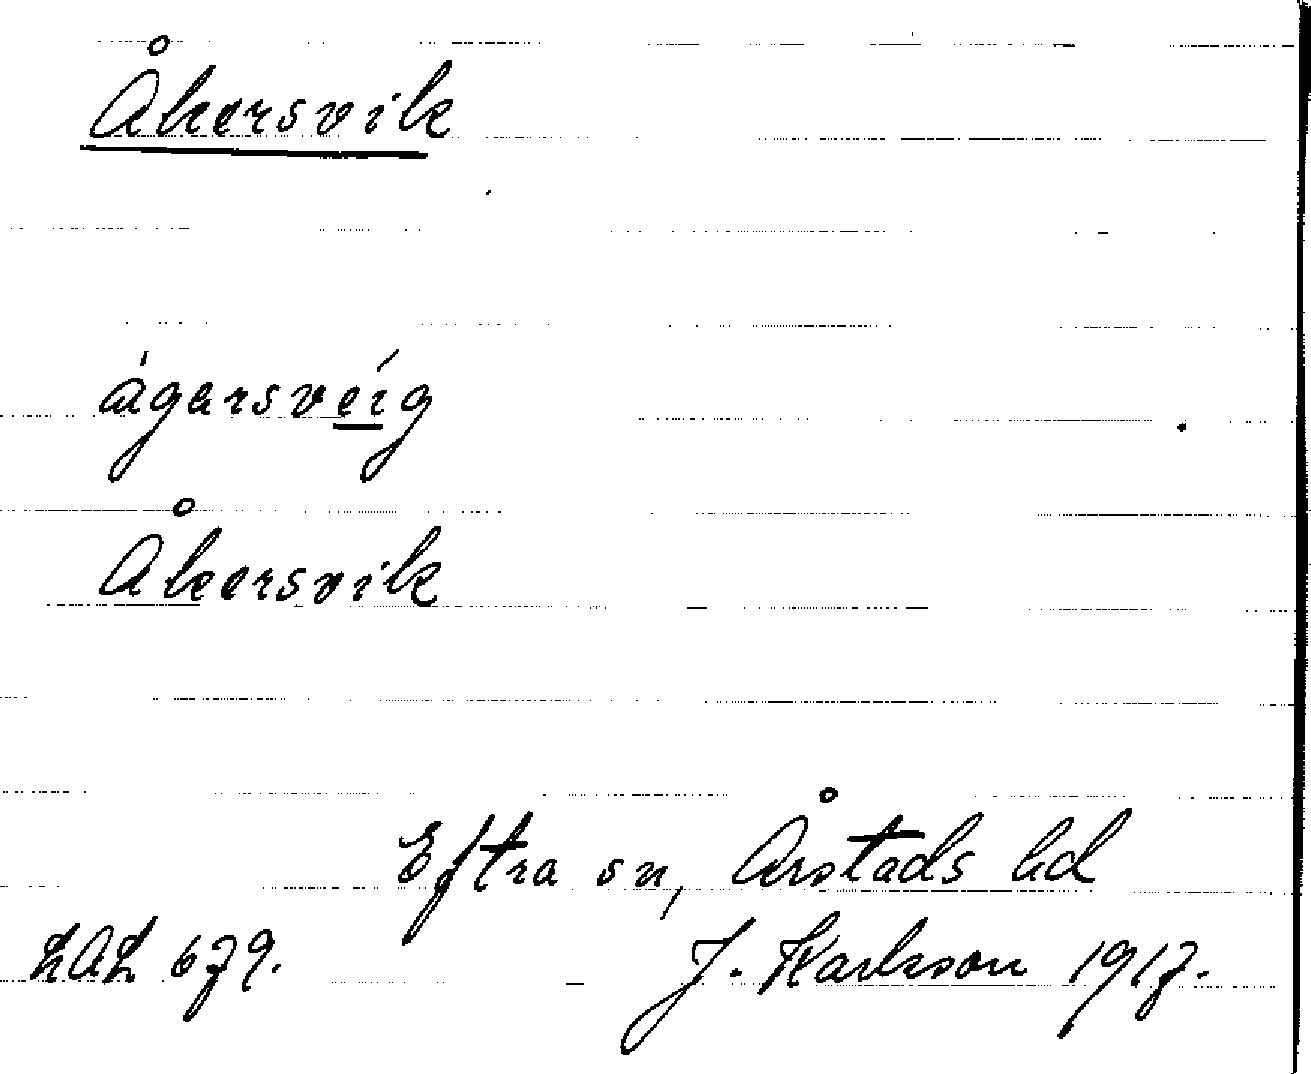 Åkersvik
ágarsveíg
Åkersvik
Eftra sn, Årstads hd
LAL 679.
J. Karlsson 1917.